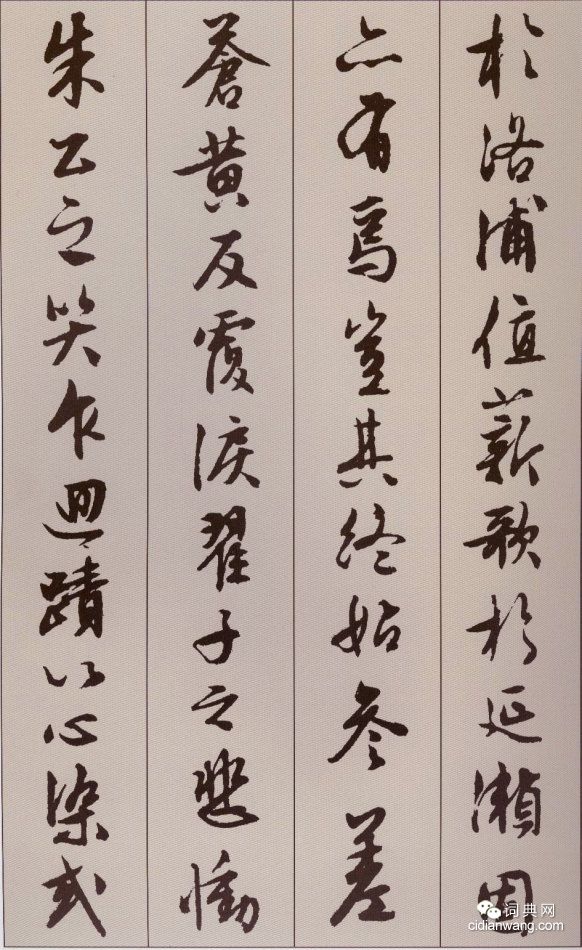 於洛浦值薪歌於延瀨固
亦有焉豈其終始參差
蒼黃反覆淚翟子之悲慟
朱公之哭乍迴蹟以心染或
词典网
cidianwang.com